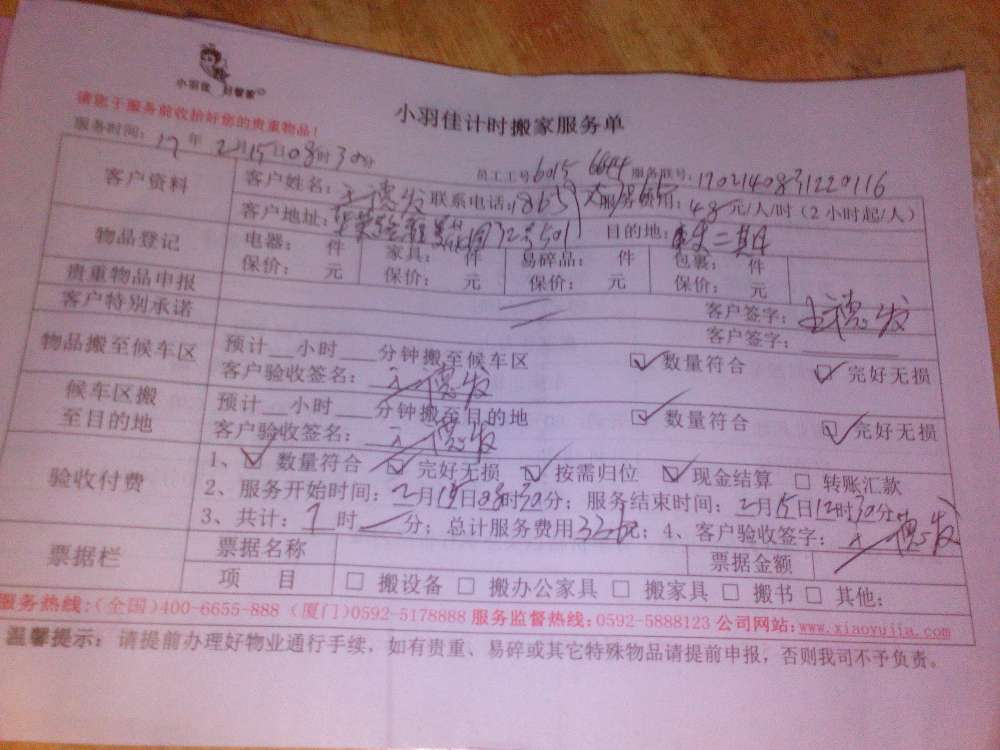 小羽佳 好管家
小羽佳计时搬家服务单
请您于服务前收拾好您的贵重物品！
服务时间：17年2月15日08时30分 员工工号6015 6644 服务账号：1702140831220116
客户资料 客户姓名：王德发 联系电话：1865 服务费用：48元/人/时（2小时起/人）
客户地址： 32号501 目的地：二期
物品登记 电器： 件 家具： 件 易碎品： 件 包裹： 件
贵重物品申报 保价： 元 保价： 元 保价： 元 保价： 元
客户特别承诺 客户签字：王德发
客户签字：
物品搬至候车区 预计__小时___分钟搬至候车区 ☑数量符合 ☑完好无损
客户验收签名：王德发
候车区搬至目的地 预计__小时___分钟搬至目的地 ☑数量符合 ☑完好无损
客户验收签名：王德发
验收付费 1、☑数量符合 ☑完好无损 ☑按需归位 ☑现金结算 □转账汇款
2、服务开始时间：2月15日08时30分；服务结束时间：2月15日12时30分
3、共计： 时 分；总计服务费用 元；4、客户验收签字：王德发
票据栏 票据名称 票据金额
项 目 □搬设备 □搬办公家具 □搬家具 □搬书 □其他：
服务热线：（全国）400-6655-888（厦门）0592-5178888 服务监督热线：0592-5888123 公司网站：www.xiaoyujia.com
温馨提示：请提前办理好物业通行手续，如有贵重、易碎或其它特殊物品请提前申报，否则我司不予负责。